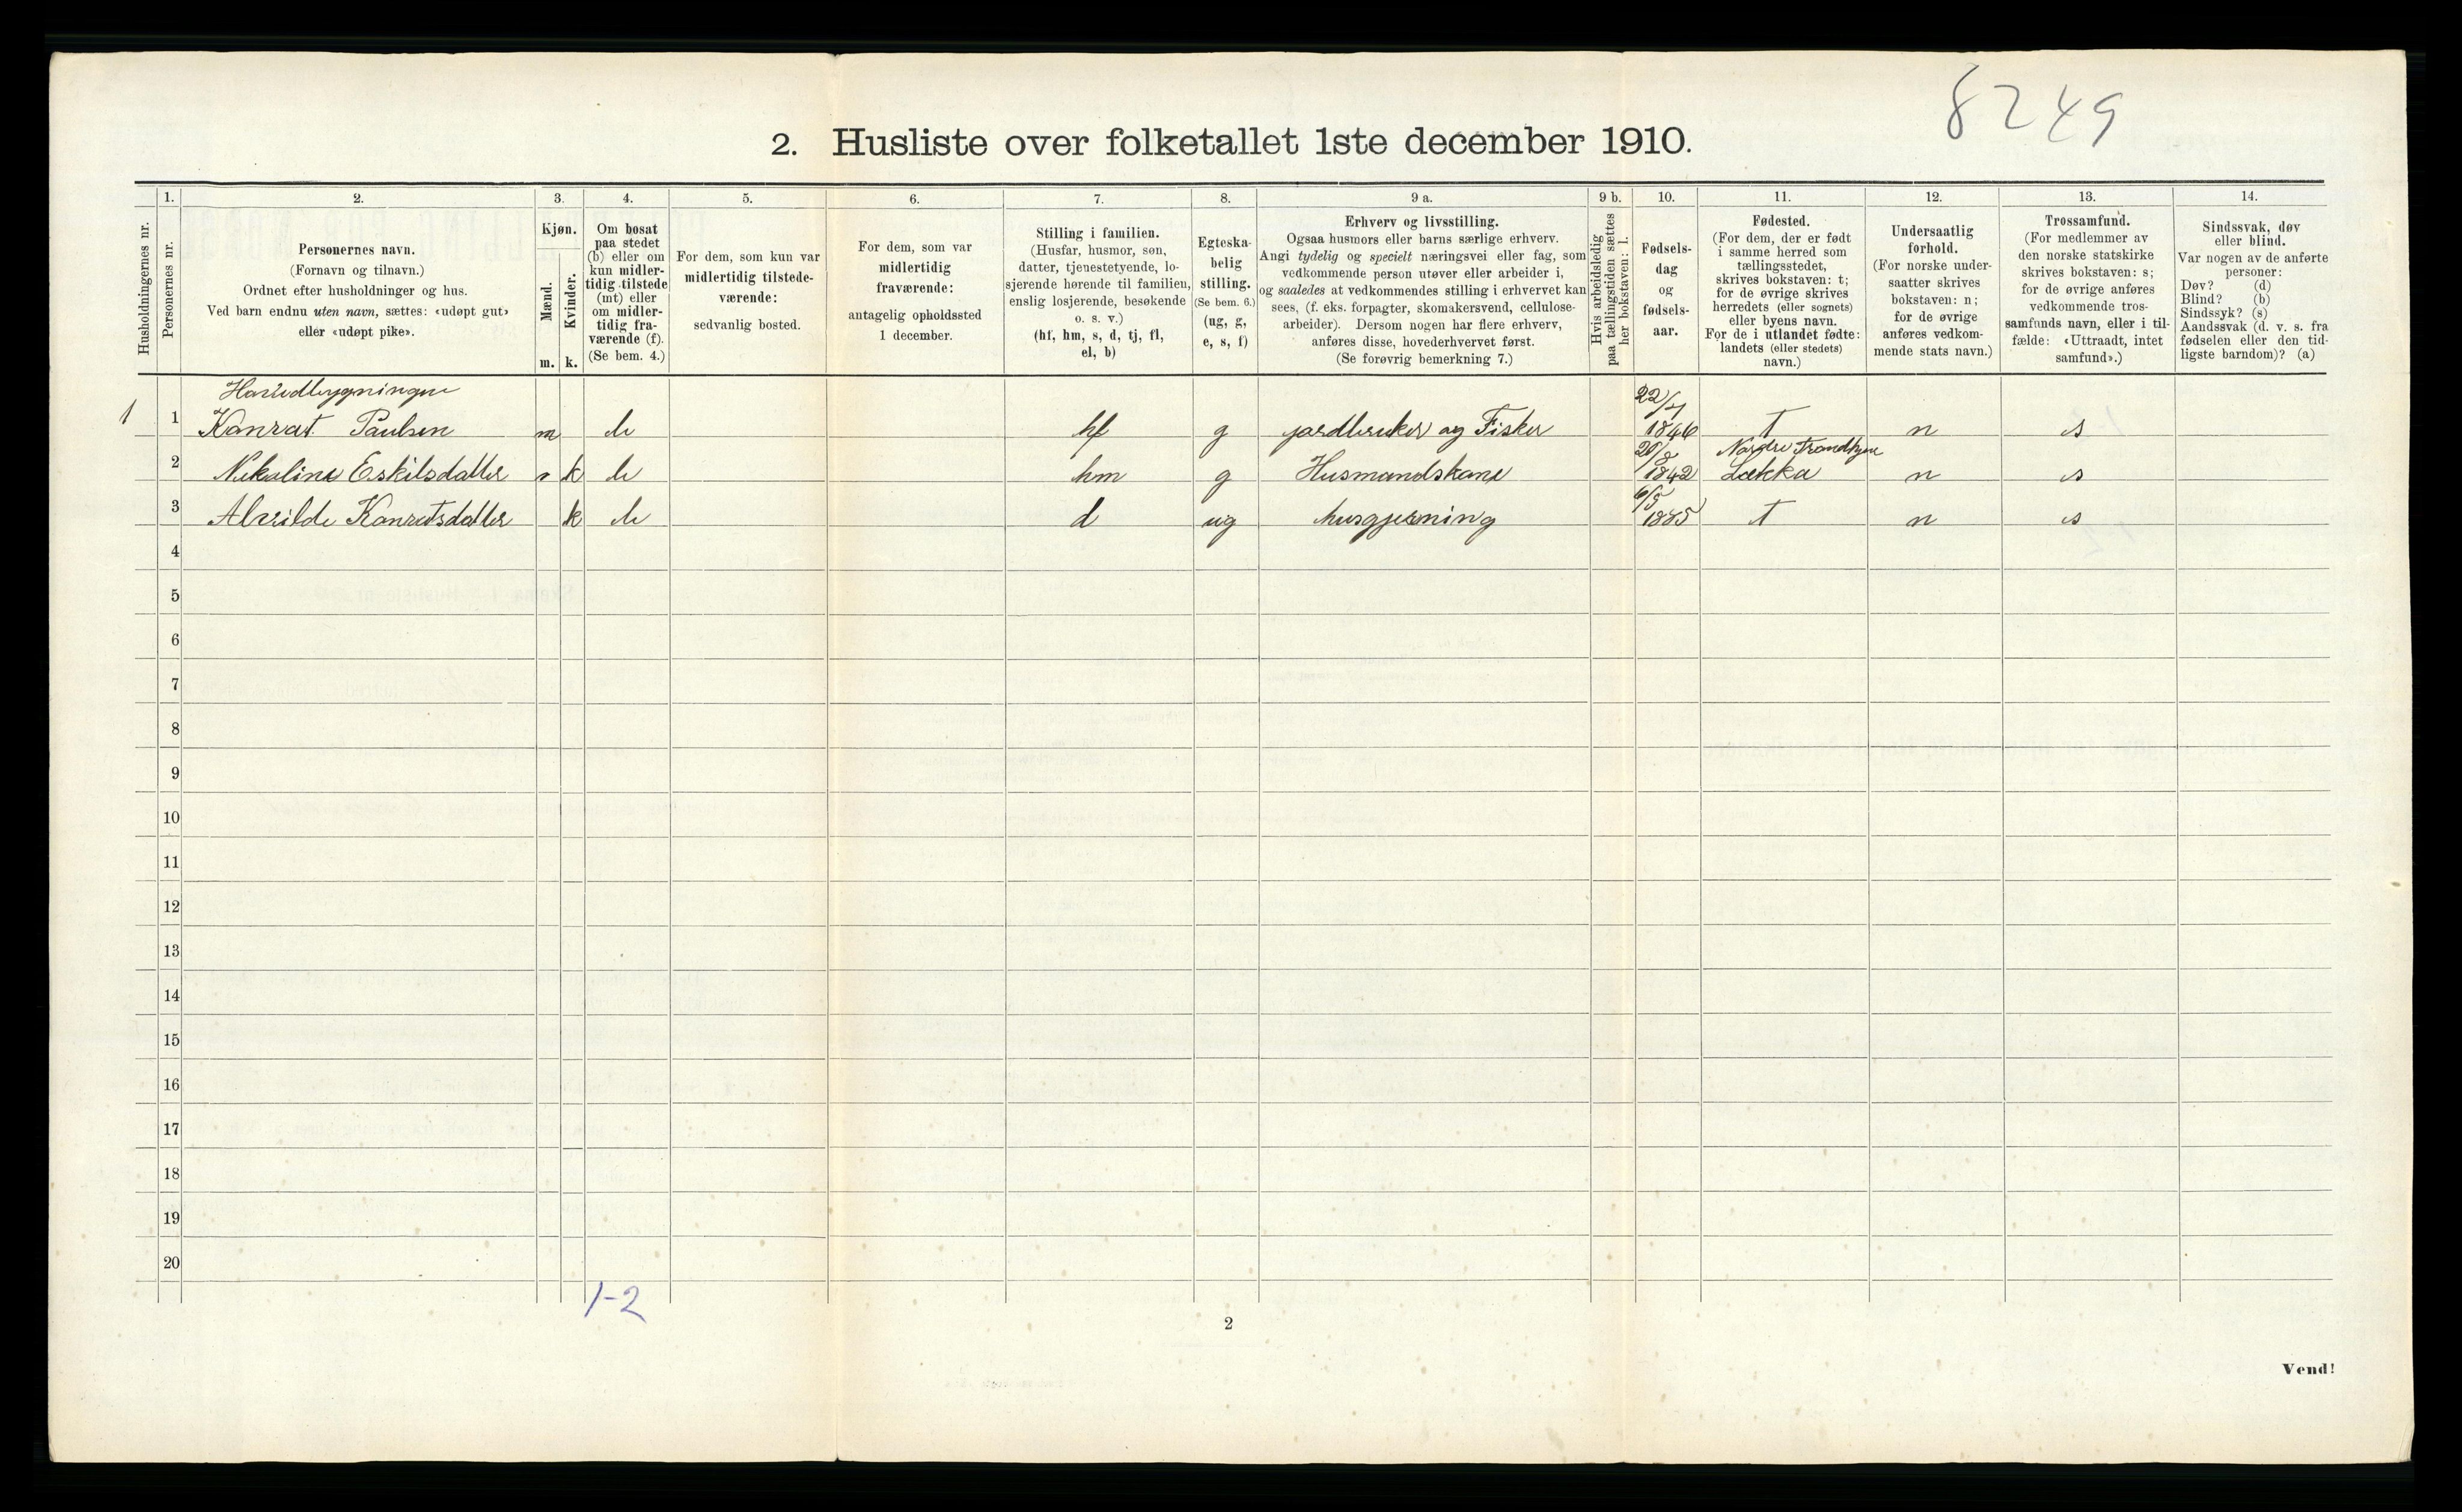 8249
2. Husliste over folketallet 1ste december 1910.
Husholdningernes nr.
1.
Personernes nr.
2.
Personernes navn.
(Fornavn og tilnavn.)
Ordnet efter husholdninger og hus.
Ved barn endnu uten navn, sættes: «udøpt gut»
eller «udøpt pike».
3.
Kjøn.
Mænd.
Kvinder.
m. k.
4.
Om bosat
paa stedet
(b) eller om
kun midler-
tidig tilstede
(mt) eller
om midler-
tidig fra-
værende (f).
(Se bem. 4.)
5.
For dem, som kun var
midlertidig tilstede-
værende:
sedvanlig bosted.
6.
For dem, som var
midlertidig
fraværende:
antagelig opholdssted
1 december.
7.
Stilling i familien.
(Husfar, husmor, søn,
datter, tjenestetyende, lo-
sjerende hørende til familien,
enslig losjerende, besøkende
o. s. v.)
(hf, hm, s, d, tj, fl,
el, b)
8.
Egteska-
belig
stilling.
(Se bem. 6.)
(ug, g,
e, s, f)
9 a.
Erhverv og livsstilling.
Ogsaa husmors eller barns særlige erhverv.
Angi tydelig og specielt næringsvei eller fag, som
vedkommende person utøver eller arbeider i,
og saaledes at vedkommendes stilling i erhvervet kan
sees, (f. eks. forpagter, skomakersvend, cellulose-
arbeider). Dersom nogen har flere erhverv,
anføres disse, hovederhvervet først.
(Se forøvrig bemerkning 7.)
9 b.
Hvis arbeidsledig
paa tællingstiden sættes
her bokstaven: l.
10.
Fødsels-
dag
og
fødsels-
aar.
11.
Fødested.
(For dem, der er født
i samme herred som
tællingsstedet,
skrives bokstaven: t;
for de øvrige skrives
herredets (eller sognets)
eller byens navn.
For de i utlandet fødte:
landets (eller stedets)
navn.)
12.
Undersaatlig
forhold.
(For norske under-
saatter skrives
bokstaven: n;
for de øvrige
anføres vedkom-
mende stats navn.)
13.
Trossamfund.
(For medlemmer av
den norske statskirke
skrives bokstaven: s;
for de øvrige anføres
vedkommende tros-
samfunds navn, eller i til-
fælde: «Uttraadt, intet
samfund».)
14.
Sindssvak, døv
eller blind.
Var nogen av de anførte
personer:
Døv? (d)
Blind? (b)
Sindssyk? (s)
Aandssvak (d. v. s. fra
fødselen eller den tid-
ligste barndom)? (a)
1 1 Kanrat Paulsen m b hf g jordbruker og Fisker 22/4 1846 t n s
2 Nikoline Eskilsdatter k b hm g Husmandskone 20/8 1842 Nordre Trondhjem Lekka n s
3 Alvilde Kanratsdatter k b d ug husgjerning 6/5 1885 t n s
4
5
6
7
8
9
10
11
12
13
14
15
16
17
18
19
20
1-2
2
Vend!